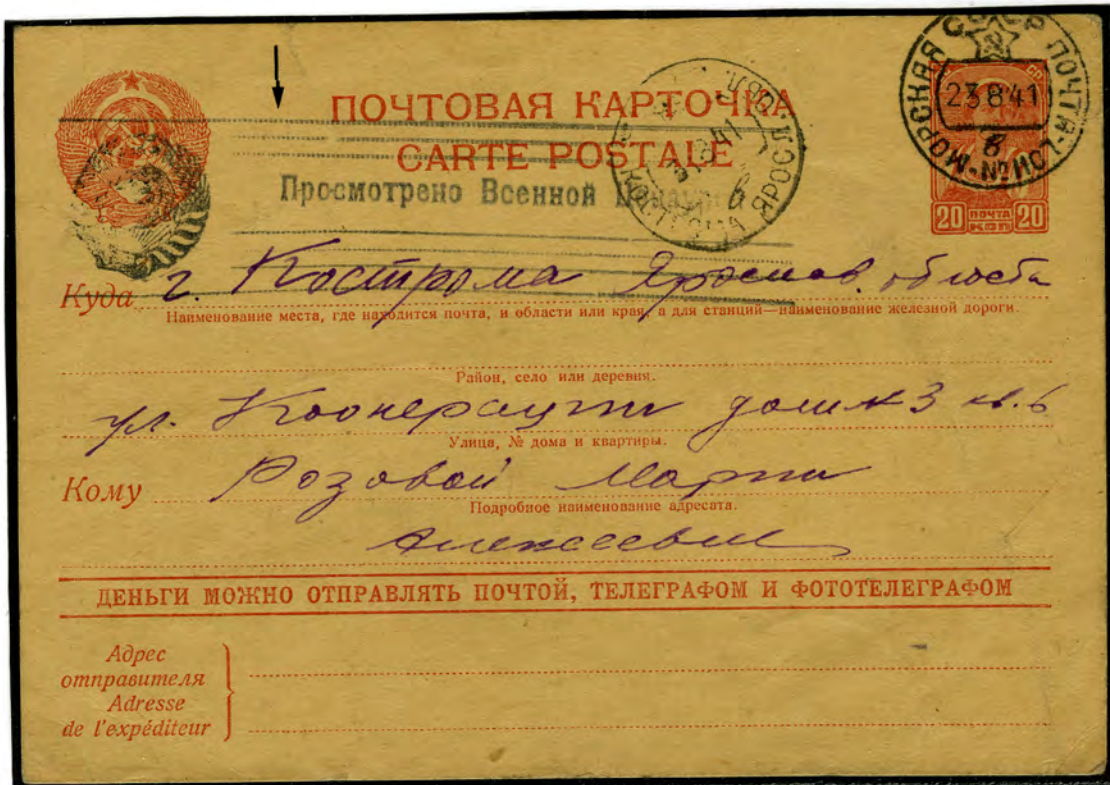 ПОЧТОВАЯ КАРТОЧКА
CARTE POSTALE
Просмотрено Военной
МОРСКАЯ ПОЧТА СССР
23 8 41
20 ПОЧТА КОП 20
Куда г. Кострома Ярослав. область
Наименование места, где находится почта, и области или края, а для станций—наименование железной дороги.
Район, село или деревня.
ул. Кооперации дом №3 кв. 6
Улица, № дома и квартиры.
Кому Розовой Марии
Подробное наименование адресата.
Алексеевне
ДЕНЬГИ МОЖНО ОТПРАВЛЯТЬ ПОЧТОЙ, ТЕЛЕГРАФОМ И ФОТОТЕЛЕГРАФОМ
Адрес
отправителя
Adresse
de l'expéditeur